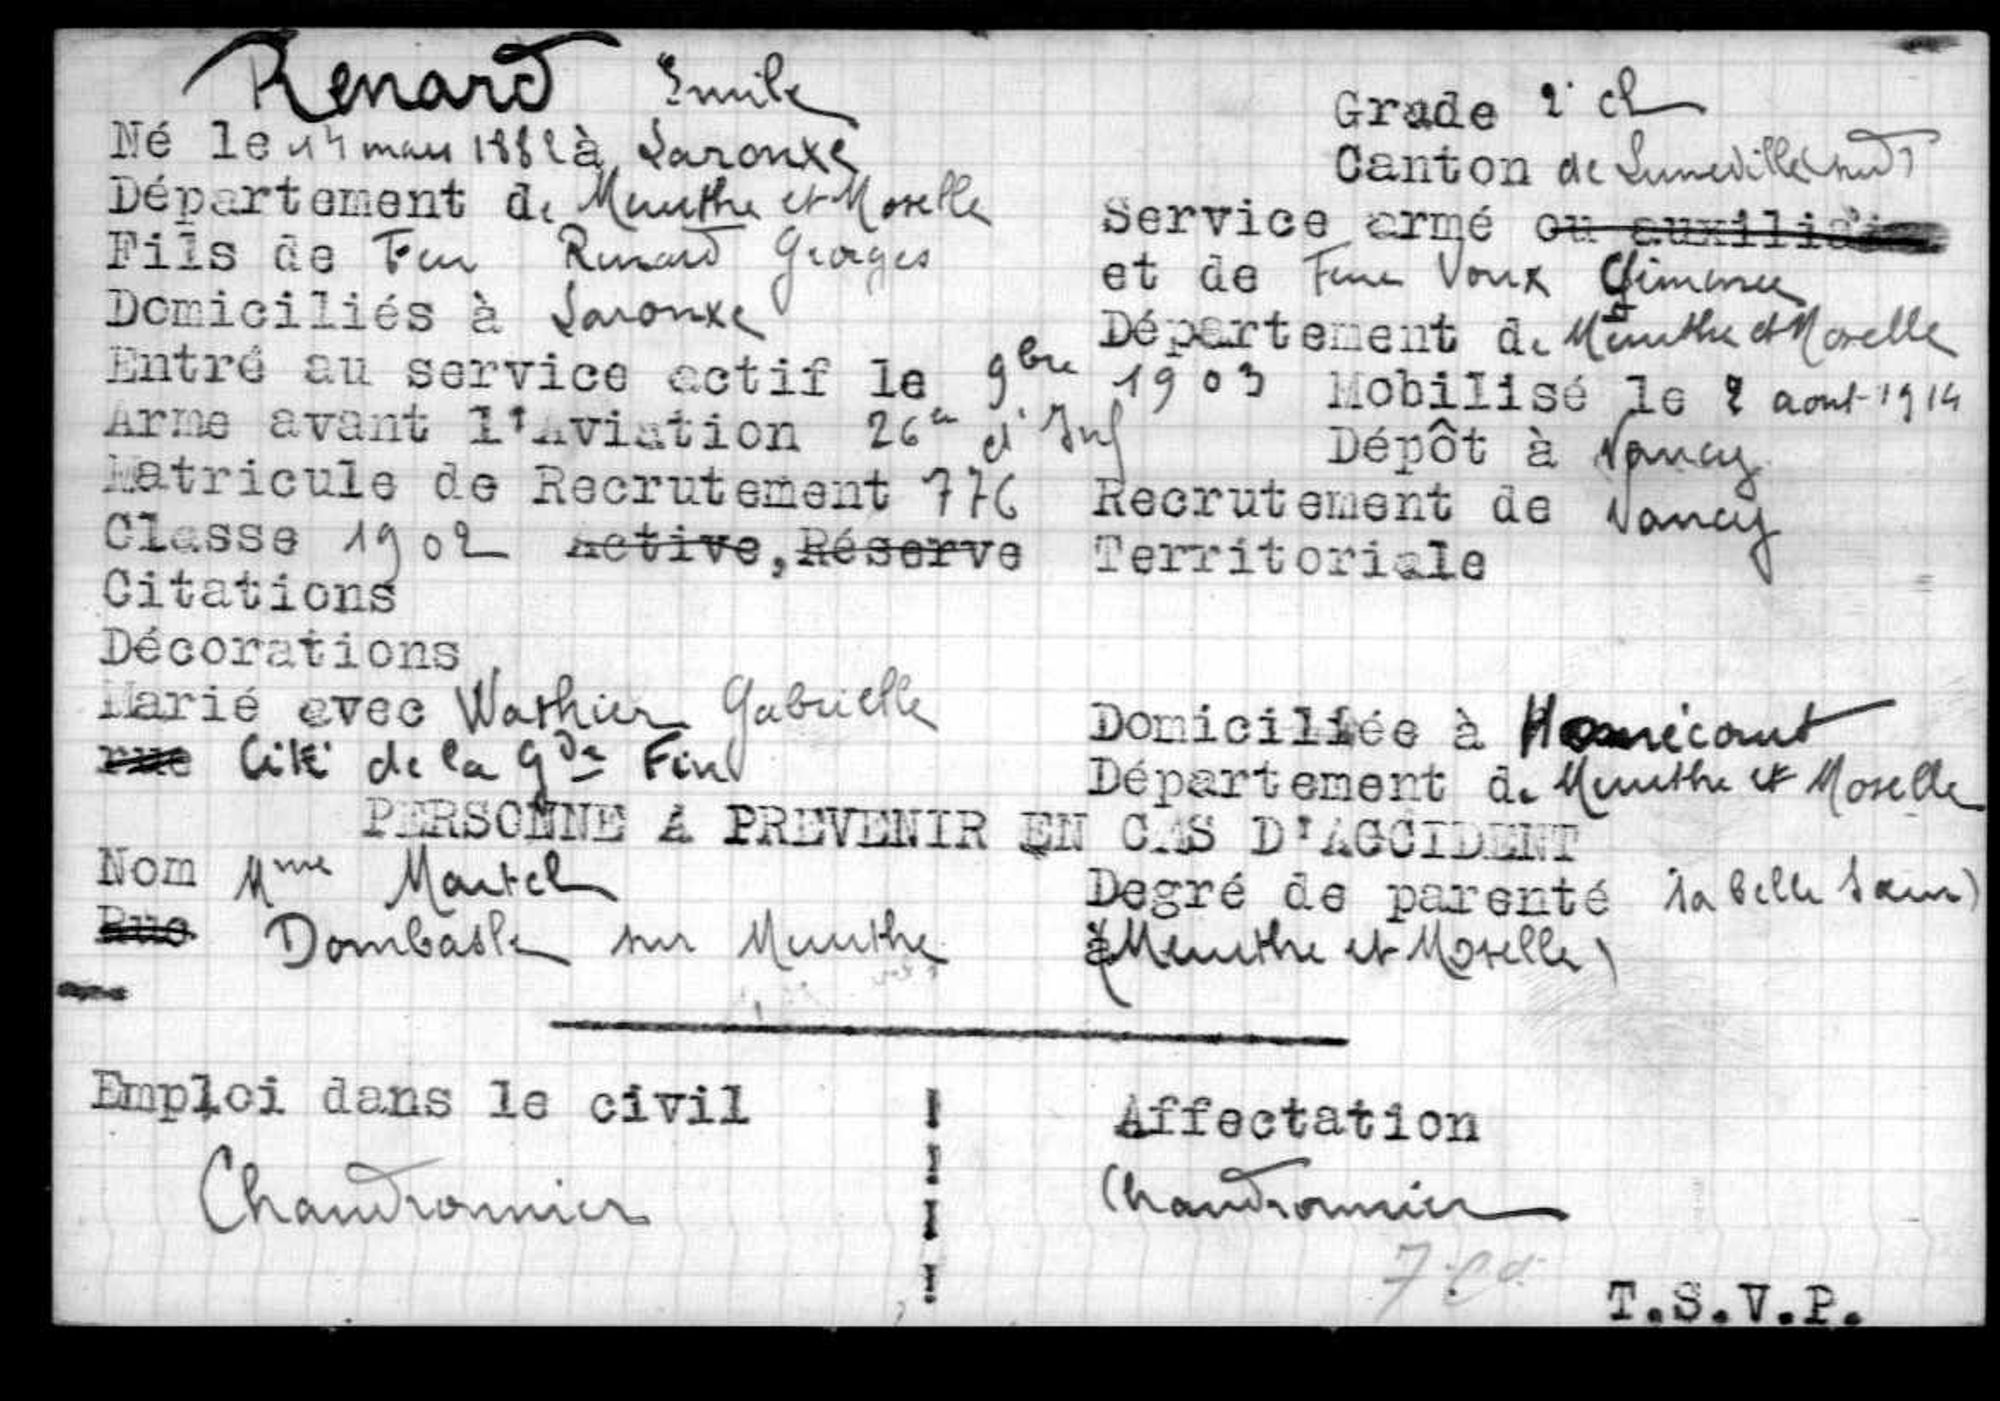 Renard Emile
Grade 2e cl
Né le 14 mars 1882 à Laronxe
Canton de Luneville (sud)
Département de Meurthe et Moselle
Service armé ou auxiliaire
Fils de Feu Renard Georges
et de Feue Voux
Domiciliés à Laronxe
Département de Meurthe et Moselle
Entré au service actif le 9bre 1903 Mobilisé le 2 aout 1914
Arme avant l'Aviation 26e d'Inf
Dépôt à Nancy
Matricule de Recrutement 776 Recrutement de Nancy
Classe 1902 Active, Réserve Territoriale
Citations
Décorations
Marié avec Wathier Gabrielle
Domiciliée à Homécourt
rue Cité de la Gde Fin
Département de Meurthe et Moselle
PERSONNE A PREVENIR EN CAS D'ACCIDENT
Nom Mme Martel
Degré de parenté sa belle sœur)
Rue Dombasle sur Meurthe
à (Meurthe et Moselle)
Emploi dans le civil
Affectation
Chaudronnier
Chaudronnier
T.S.V.P.